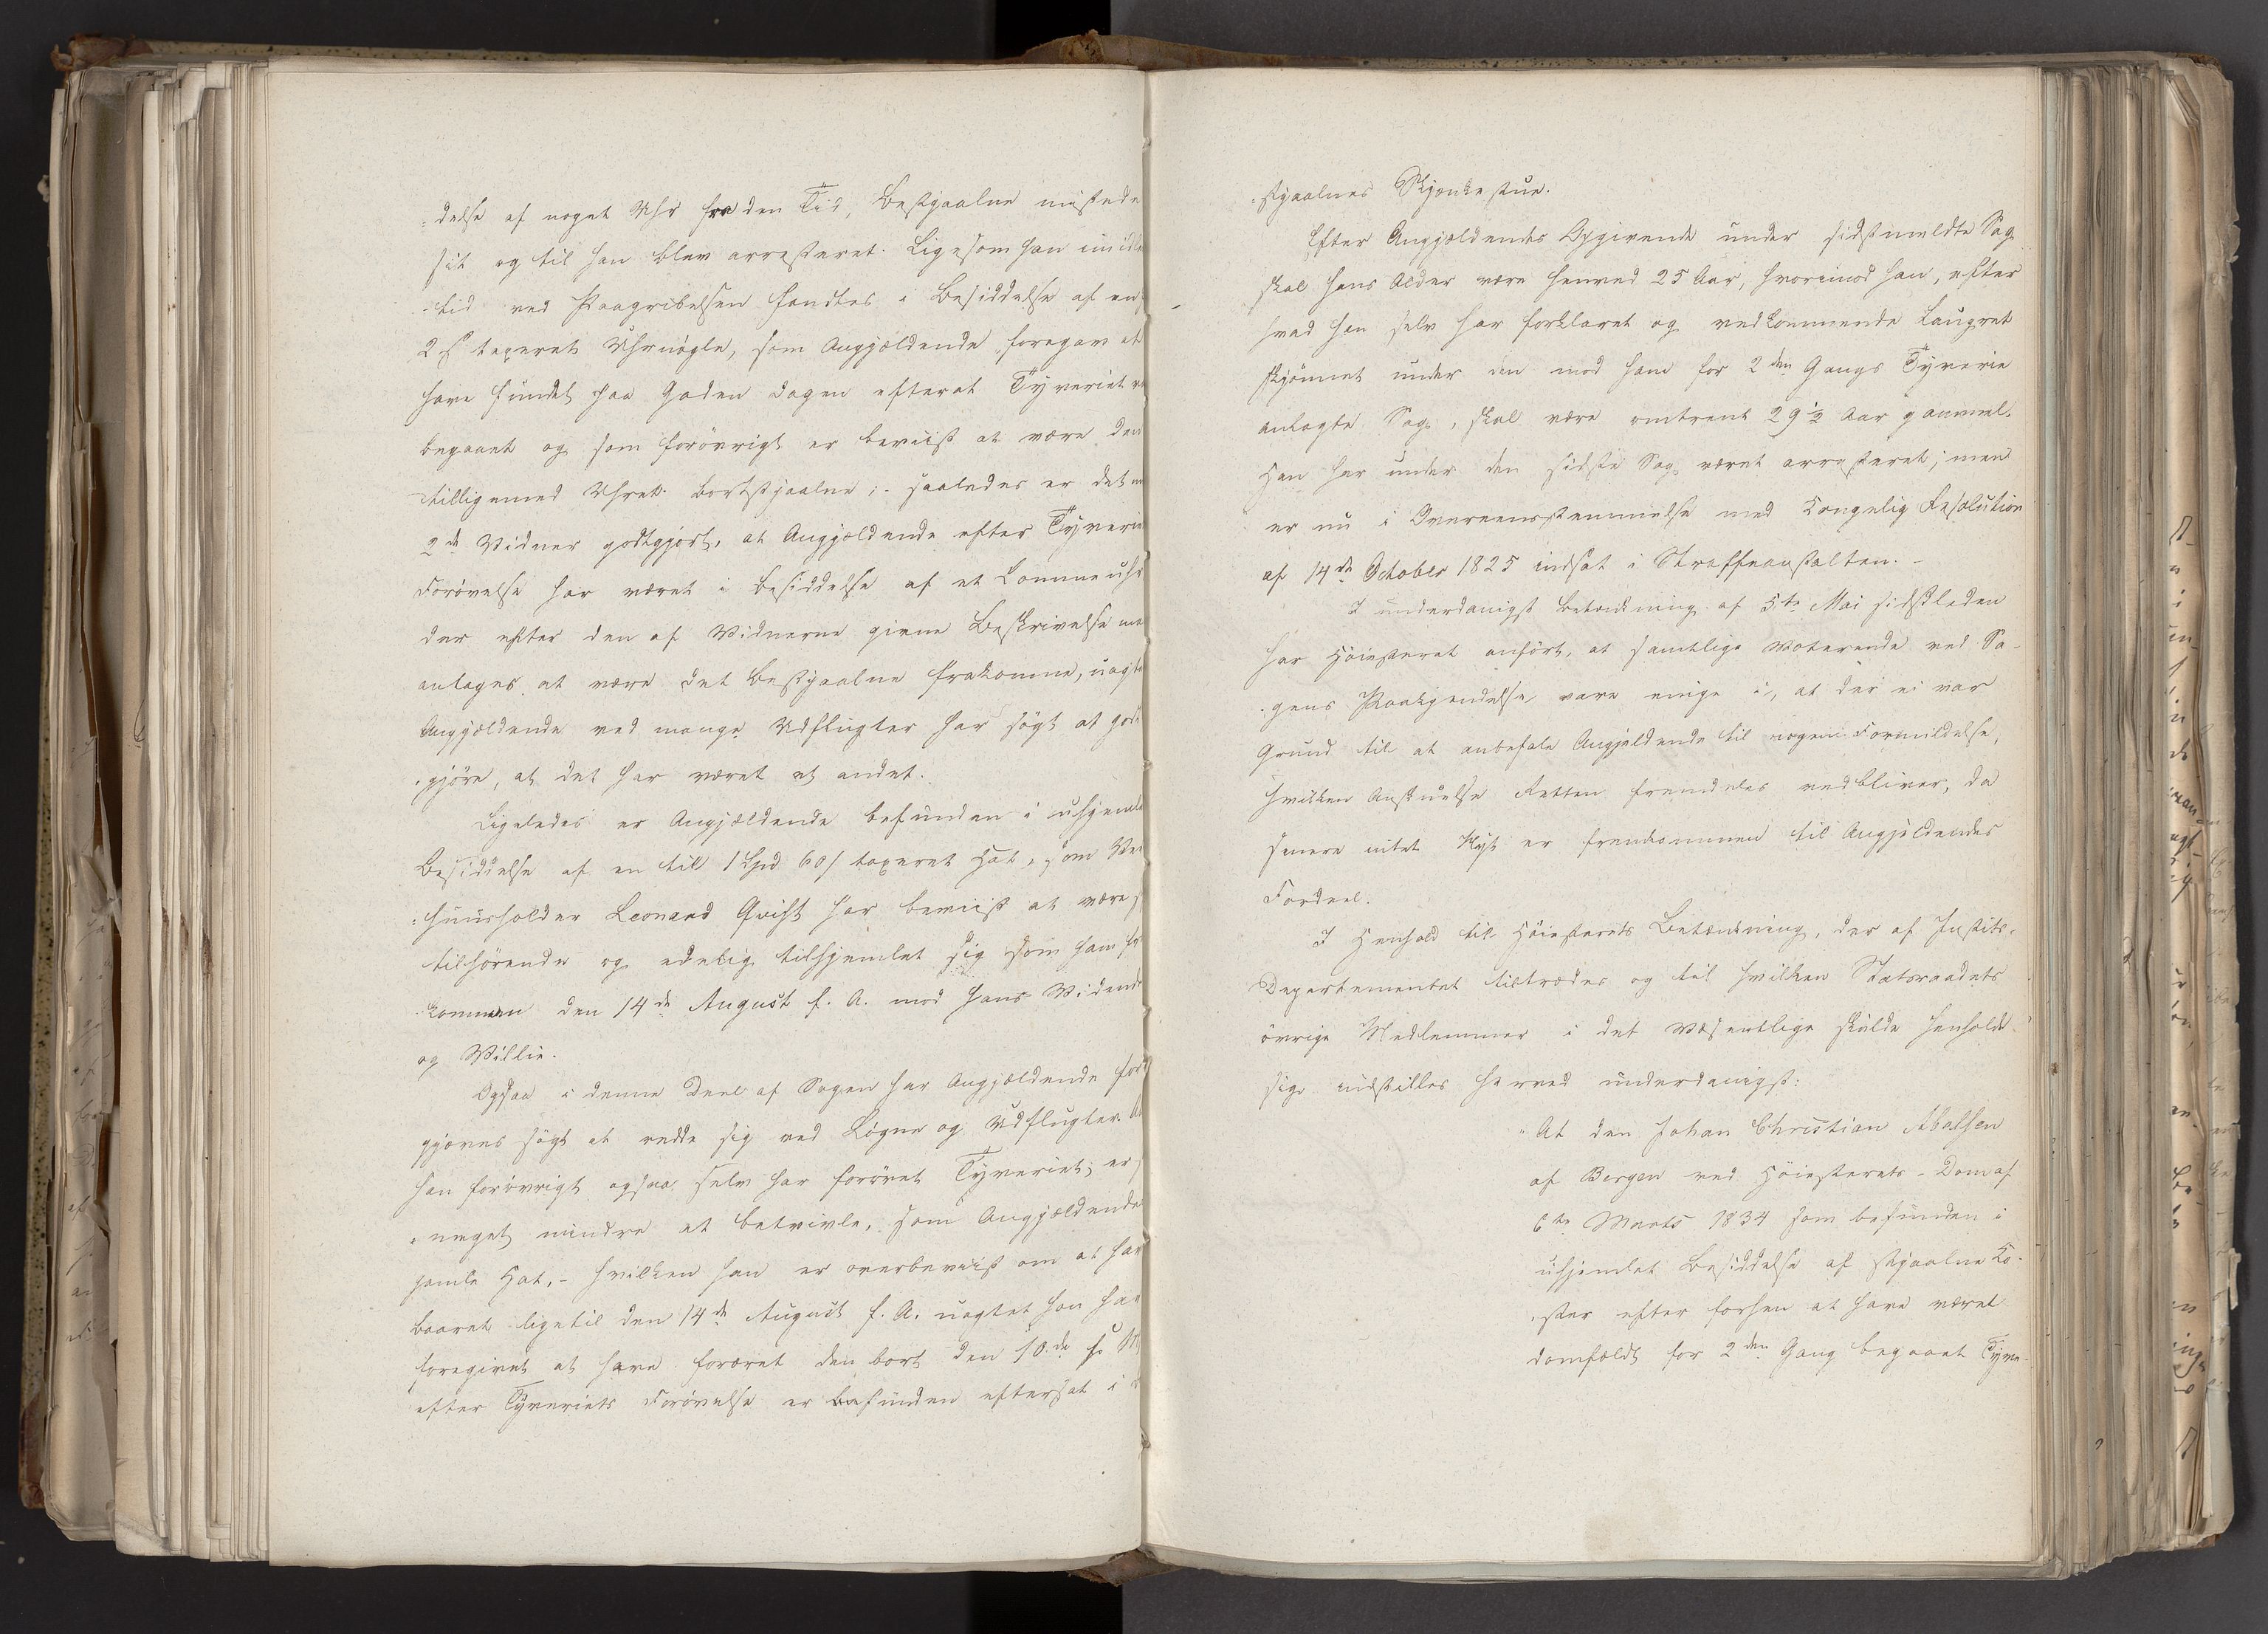 -delse af noget Uhr fra den Tid, Bestjaalne mistede
sit og til han blev arresteret. Ligesom han imid
-tid ved Paagribelsen fandtes i Besiddelse af en
2 s taxeret Uhrnøgle, som Angjældende foregav at
have fundet paa Gaden dagen efterat Tyveriet
begaaet og som forøvrigt er beviist at være den
tilligemed Uhret bortstjaalne; - saaledes er det
2de Vidner godtgjort, at Angjældende efter Tyveri
Forøvelse har været i Besiddelse af et Lommeuhr
der efter den af Vidnerne givne Beskrivelse
antages at være det Bestjaalne frakomne, uagt
Angjældende ved mange Udflugter har søgt at godt
-gjøre, at det har været et andet.
Ligeledes er Angjældende befunden i uhjemle
Besiddelse af en til 1 Spd 60 s taxeret Hat, som
-huusholder Leonard Qvist har beviist at være
tilhørende og edelig tilhjemlet sig som ham fra
-kommen den 14de August f. A. mod hans Vidende
og Villie.
Ogsaa i denne Deel af Sagen har Angjældende for
gjæves søgt at redde sig ved Løgne og Udflugter. A
han forøvrigt ogsaa selv har forøvet Tyveriet, er
-meget mindre at betvivle, som Angjældende
gamle Hat, - hvilken han er overbeviist om at hav
baaret ligetil den 14de August f. A. uagtet han har
foregivet at have foræret den bort den 10de
efter Tyveriets Forøvelse er befunden eftersat i
-stjaalnes Skjænkestue.
Efter Angjældendes Opgivende under sidstmeldte Sag
skal hans Alder være henved 25 Aar, hvorimod han, efter
hvad han selv har forklaret og vedkommende Laugret
skjønnet under den mod ham for 2den Gangs Tyverie
anlagte Sag, skal være omtrent 29½ Aar gammel.
Han har under den sidste Sag været arresteret; men
er nu i Overeensstemmelse med Kongelig Resolution
af 14de October 1825 indsat i Straffeanstalten. -
I underdanigst Betænkning af 5te Mai sidstleden
har Høiesteret anført, at samtlige Voterende ved Sa-
-gens Paakjendelse vare enige i, at der ei var
Grund til at anbefale Angjældende til nogen Formildelse,
hvilken Anskuelse Retten fremdeles vedbliver, da
senere intet Nyt er fremkommen til Angjældendes
Fordeel.
I Henhold til Høiesterets Betænkning, der af Justits-
Departementet tiltrædes og til hvilken Statsraadets
øvrige Medlemmer i det Væsentlige skulde henholdt
sig indstilles herved underdanigst:
"At den Johan Christian Abelsen
af Bergen ved Høiesterets-Dom af
6te Marts 1834 som befunden i
uhjemlet Besiddelse af stjaalne Ko-
-ster efter forhen at have været
domfældt for 2den Gang begaaet Tyve-